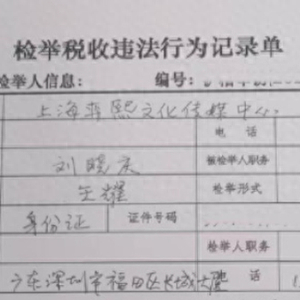 检举税收违法行为记录单
检举人信息: 编号:
上海莽熙文化传媒中心
电 话
刘晓庆 被检举人职务
王耀 检举形式
身份证 证件号码
检举人职务
广东深圳市福田区长城大厦 电 话